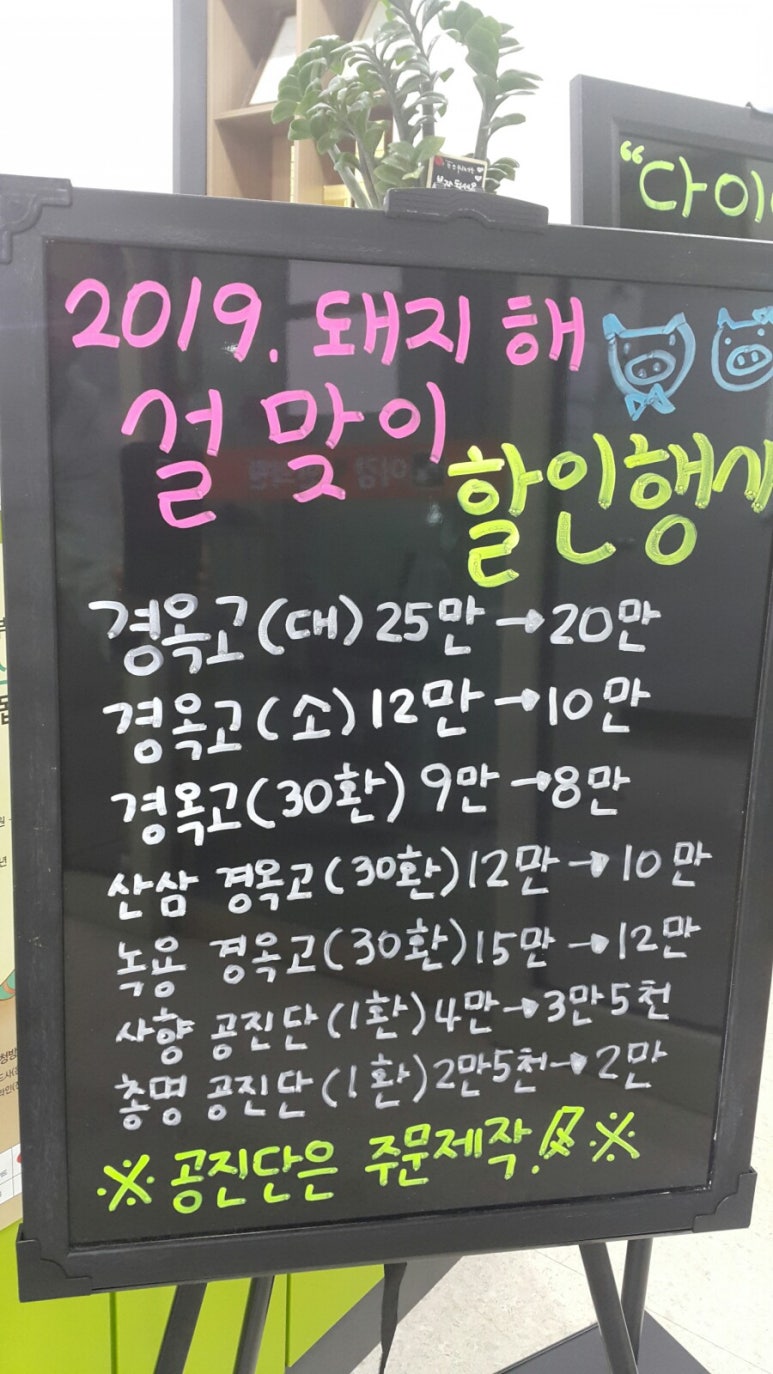 "다이
2019. 돼지 해
설 맞이
할인행사
경옥고(대) 25만→20만
경옥고(소) 12만→10만
경옥고(30환) 9만→8만
산삼 경옥고(30환) 12만→10만
녹용 경옥고(30환) 15만→12만
사향 공진단(1환) 4만→3만5천
총명 공진단(1환) 2만5천→2만
※ 공진단은 주문제작! ※